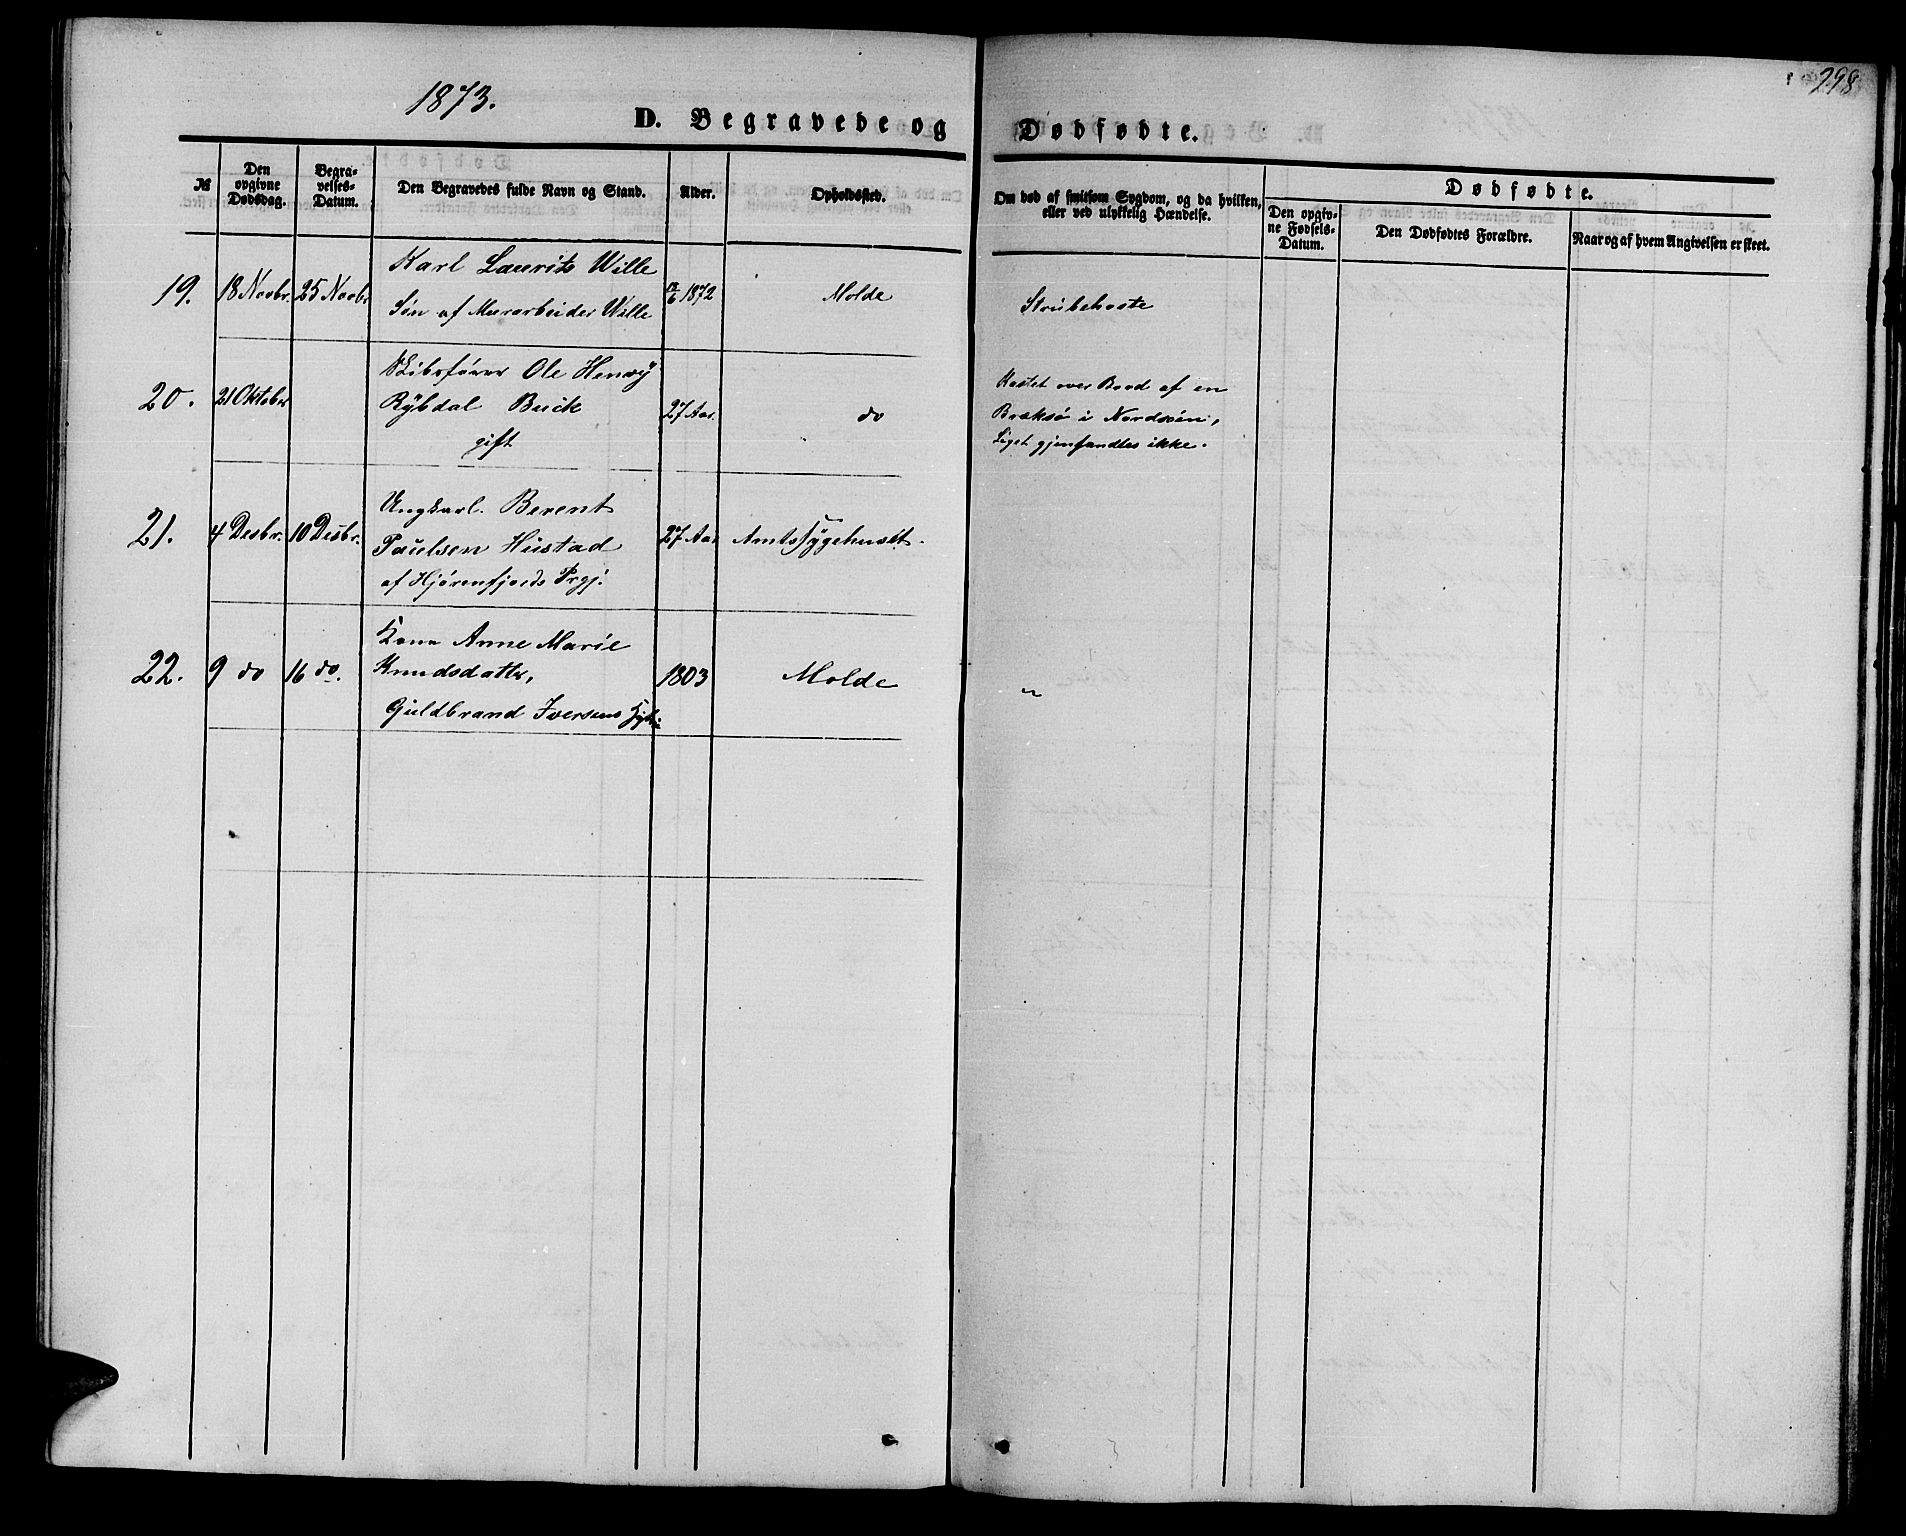 298
1873.
D. Begravede og Dødfødte.
№
Den opgivne Dødsdag.
Begravelses-Datum.
Den Begravedes fulde Navn og Stand.
Alder.
Opholdssted.
Om død af smitsom Sygdom, og da hvilken, eller ved ulykkelig Hændelse.
Dødfødte.
Den opgivne Fødsels-Datum.
Den Dødfødtes Forældre.
Naar og af hvem Angivelsen er skeet.
19. 18 Novbr. 25 Novbr
Karl Laurits Wille
Søn af Murarbeider Wille
1872 Molde Strubehoste
20. 21 Oktober
Skibsfører Ole Henry
Rybdal Buck
gift
27 Aar. do
Kastet over Bord af en
Braksø i Nordsøen,
Liget gjenfandtes ikke.
21. 4 Desbr. 10 Desbr.
Ungkarl. Berent
Paulsen Hustad
af Hjørenfjords Prgj.
27 Aar Amtssygehuset.
22. 9 do 16 do.
Kone Anne Marie
Knudsdatter,
Guldbrand Iversens
1803 Molde "